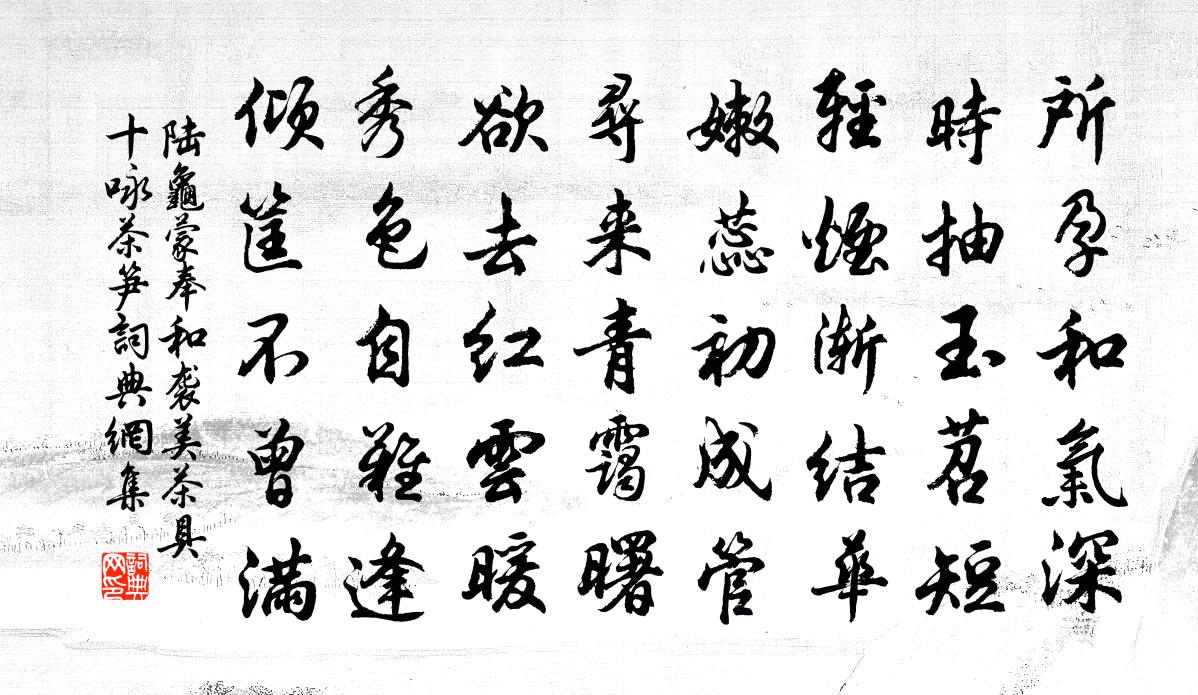 所孕和氣深
時抽玉苕短
輕煙漸結華
嫩蕊初成管
尋来青靄曙
欲去红雲暖
秀色自難逢
傾筐不曾滿
陆龜蒙奉和袭美茶具
十咏茶笋詞典網集
詞典網印